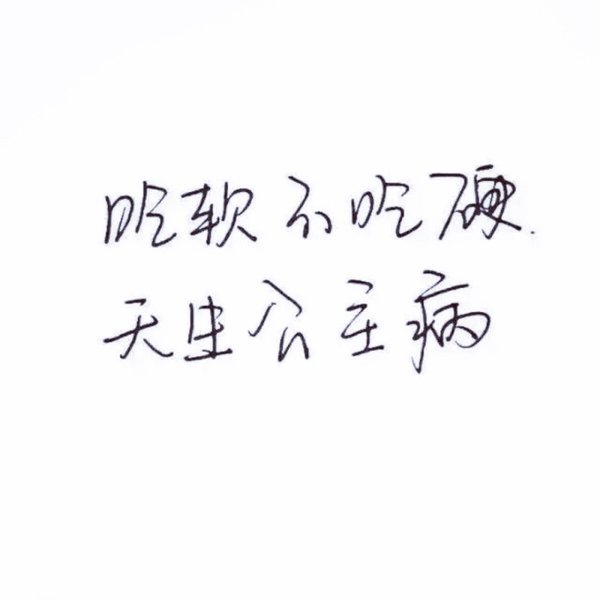 吃软不吃硬.
天生公主病